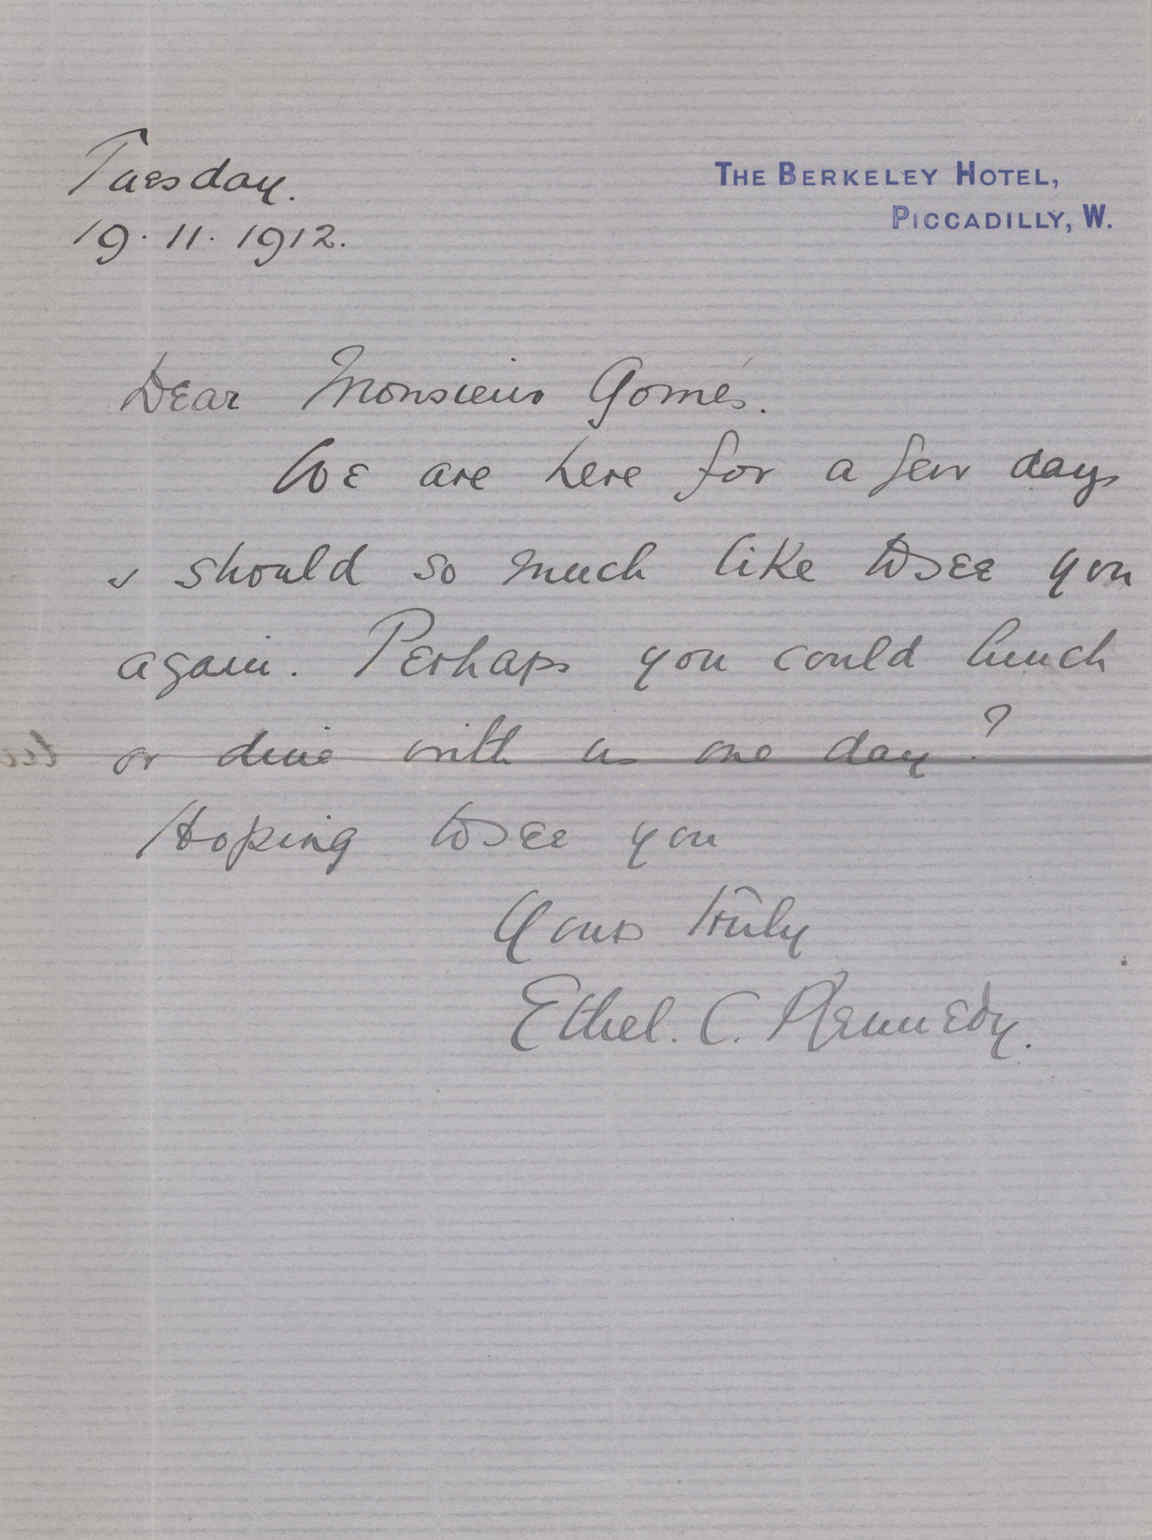 Tuesday.
19.11.1912.
THE BERKELEY HOTEL,
PICCADILLY, W.
Dear Monsieur Gomés.
We are here for a few days
& should so much like to see you
again. Perhaps you could lunch
or dine with us one day?
Hoping to see you
Yours truly
Ethel. C. Kennedy.